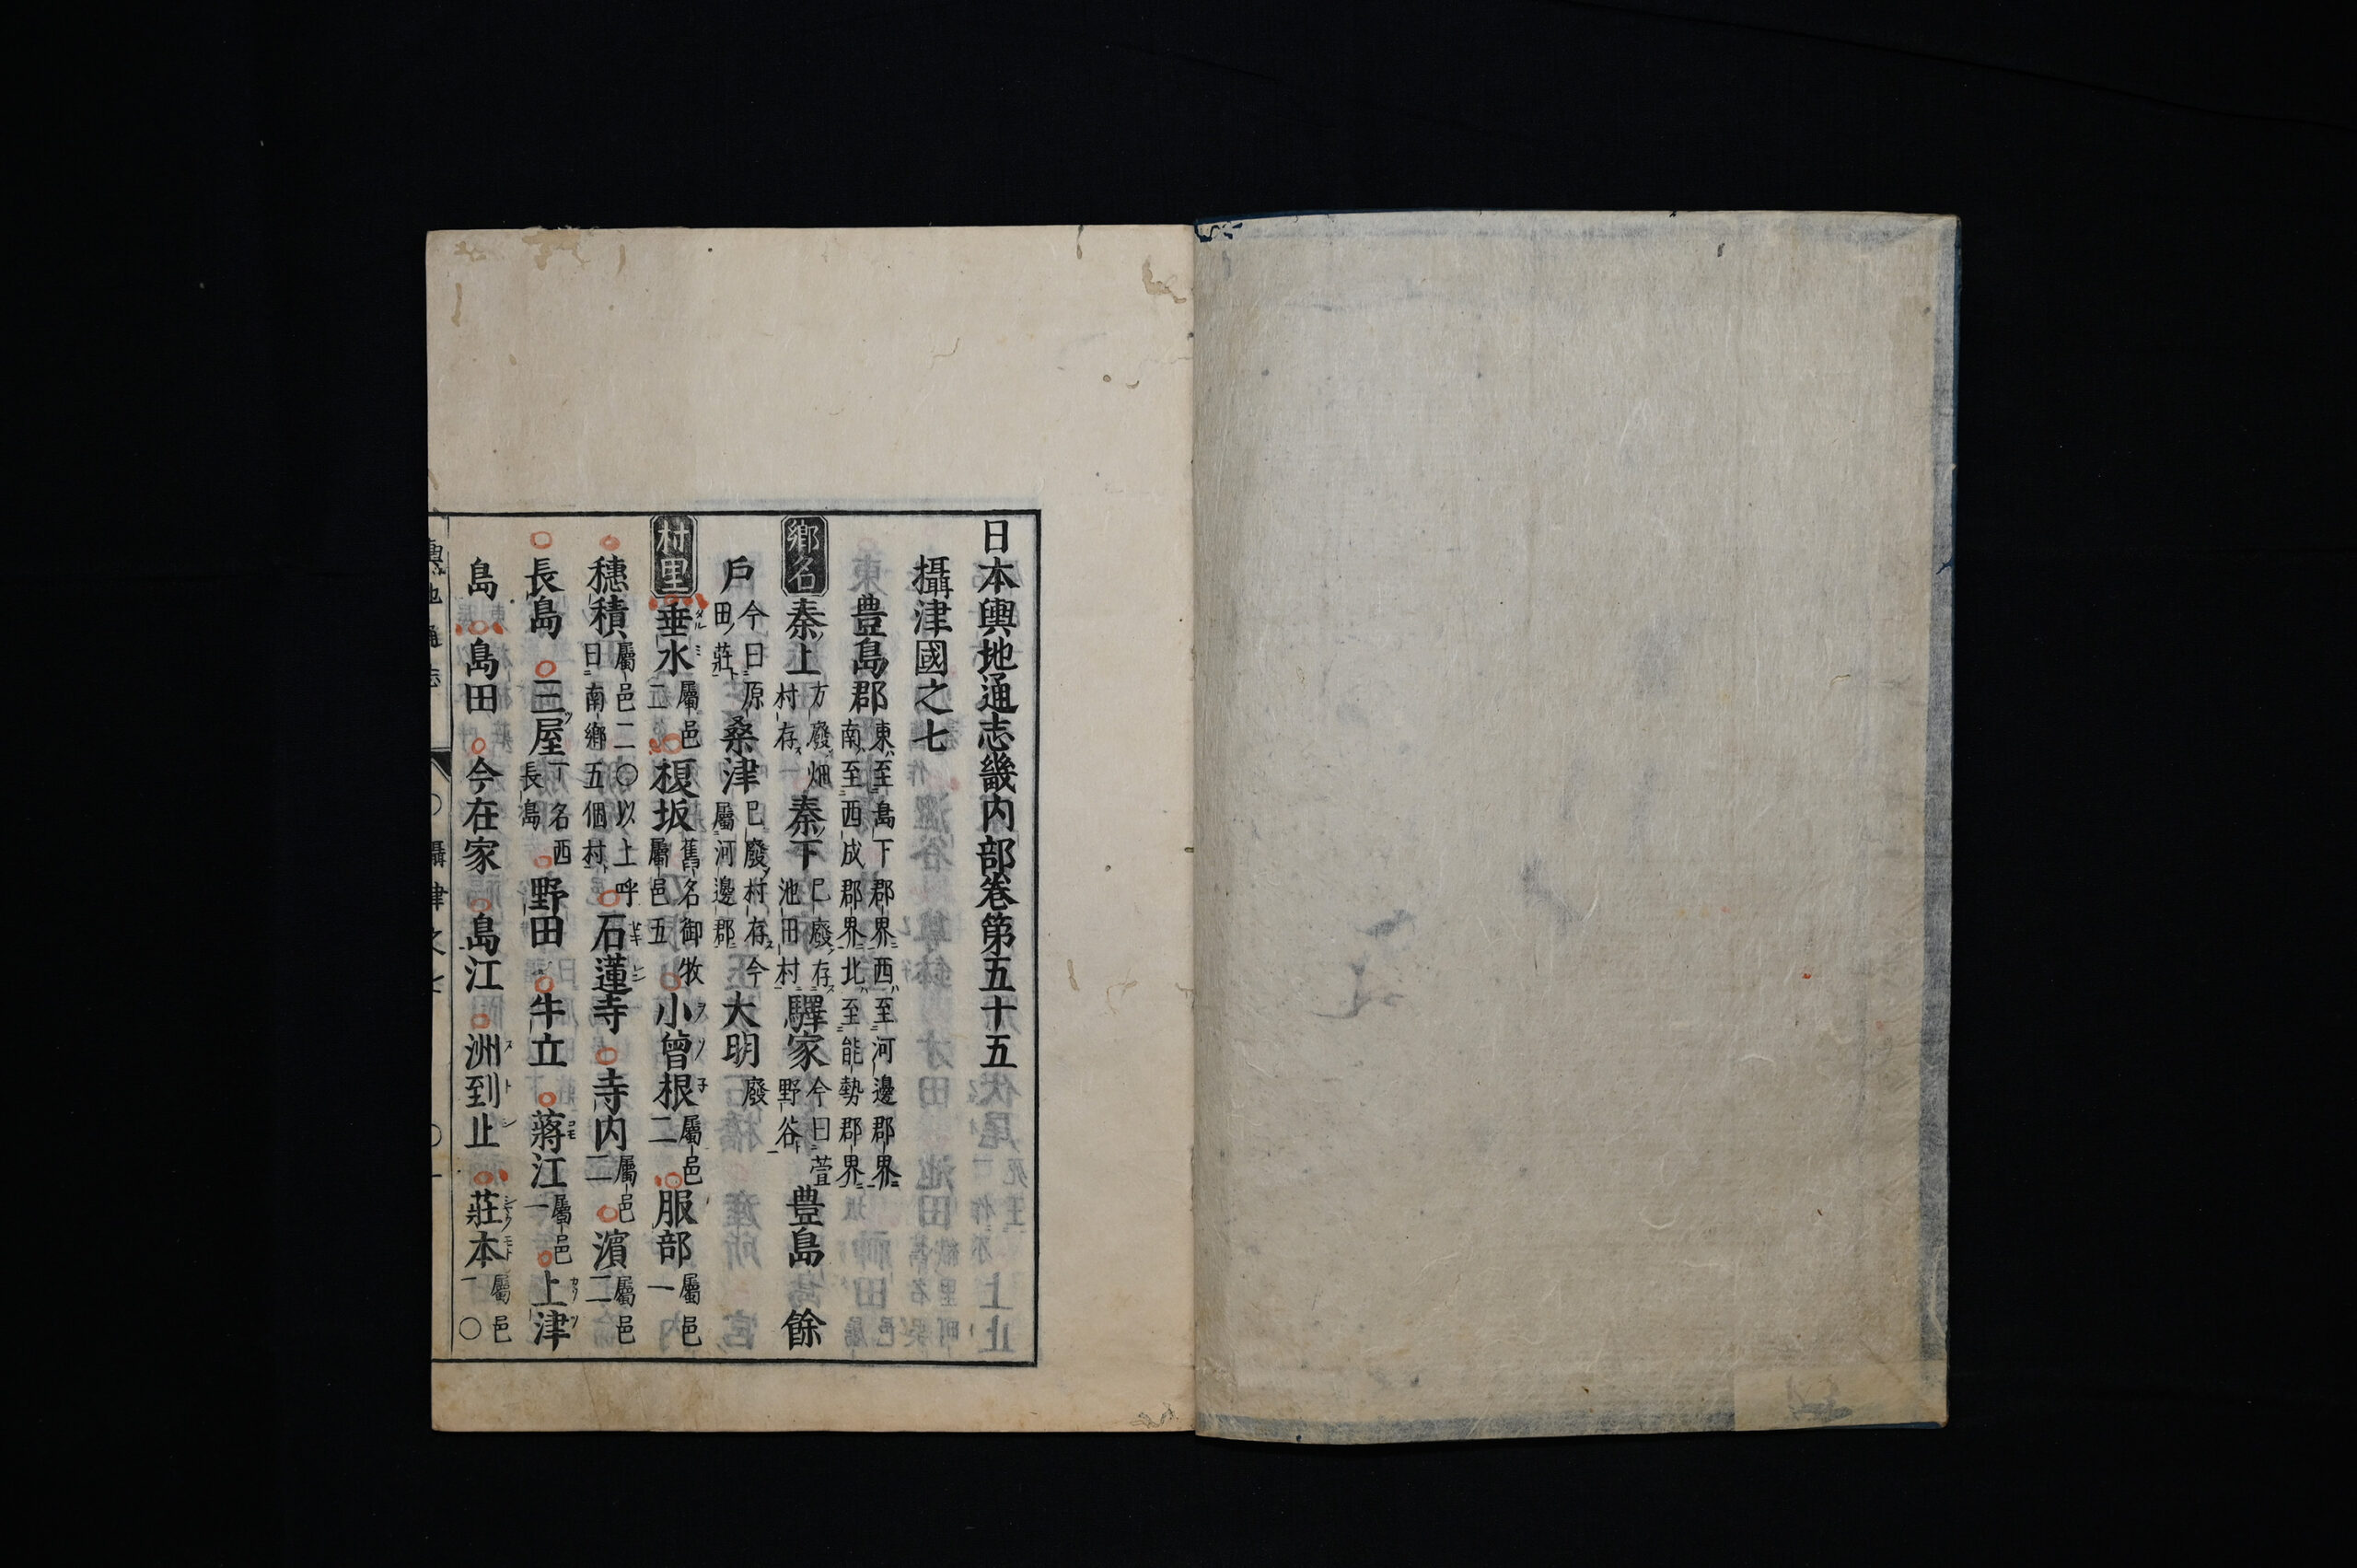 日本輿地通志畿内部卷第五十五
攝津國之七
豊島郡 東至島下郡界西至河邊郡界 南至西成郡界北至能勢郡界
鄕名 秦上 方廢畑村存 秦下 已廢存池田村 驛家 今曰萱野谷 豊島 餘
戶 今曰原田莊 桑津 已廢村存今屬河邊郡 大明 廢
村里 垂水 屬邑二 榎坂 舊名御牧屬邑五 小曾根 屬邑二 服部 屬邑一
穗積 屬邑二〇以上呼曰南鄕五個村 石蓮寺 寺内 屬邑二 濱 屬邑二
長島 三屋 一名西長島 野田 牛立 蔣江 屬邑一 上津
島 島田 今在家 島江 洲到止 莊本 屬邑一〇